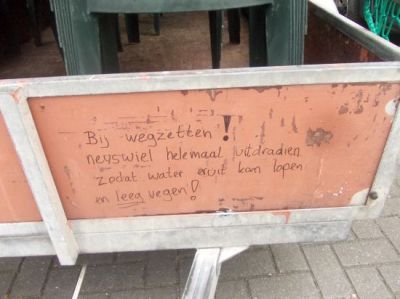 Bij wegzetten!
neuswiel helemaal uitdraaien
zodat water eruit kan lopen
en leeg vegen!